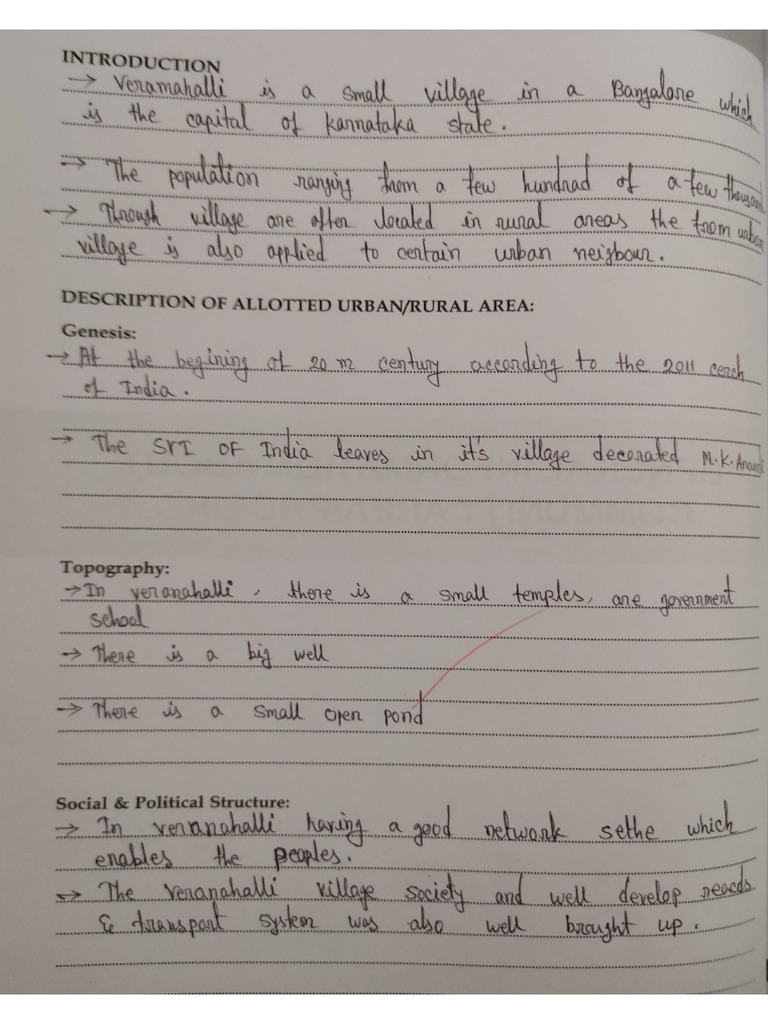 INTRODUCTION
→ Veramahalli is a small village in a Bangalore which
is the capital of Karnataka state.
→ The population ranging from a few hundrad of a few thousand
→ Through village are often located in rural areas the from urban
village is also applied to certain urban neizbour.
DESCRIPTION OF ALLOTTED URBAN/RURAL AREA:
Genesis:
→ At the begining of 20 m century according to the 2011
of India.
→ The SVI OF India leaves in it's village decorated M.K.
Topography:
→ In veranahalli, there is a small temples, are government
school
→ There is a big well
→ There is a small open pond
Social & Political Structure:
→ In veranahalli having a good network sethe which
enables the peoples.
→ The veranahalli village society and well develop
& transport system was also well brought up.